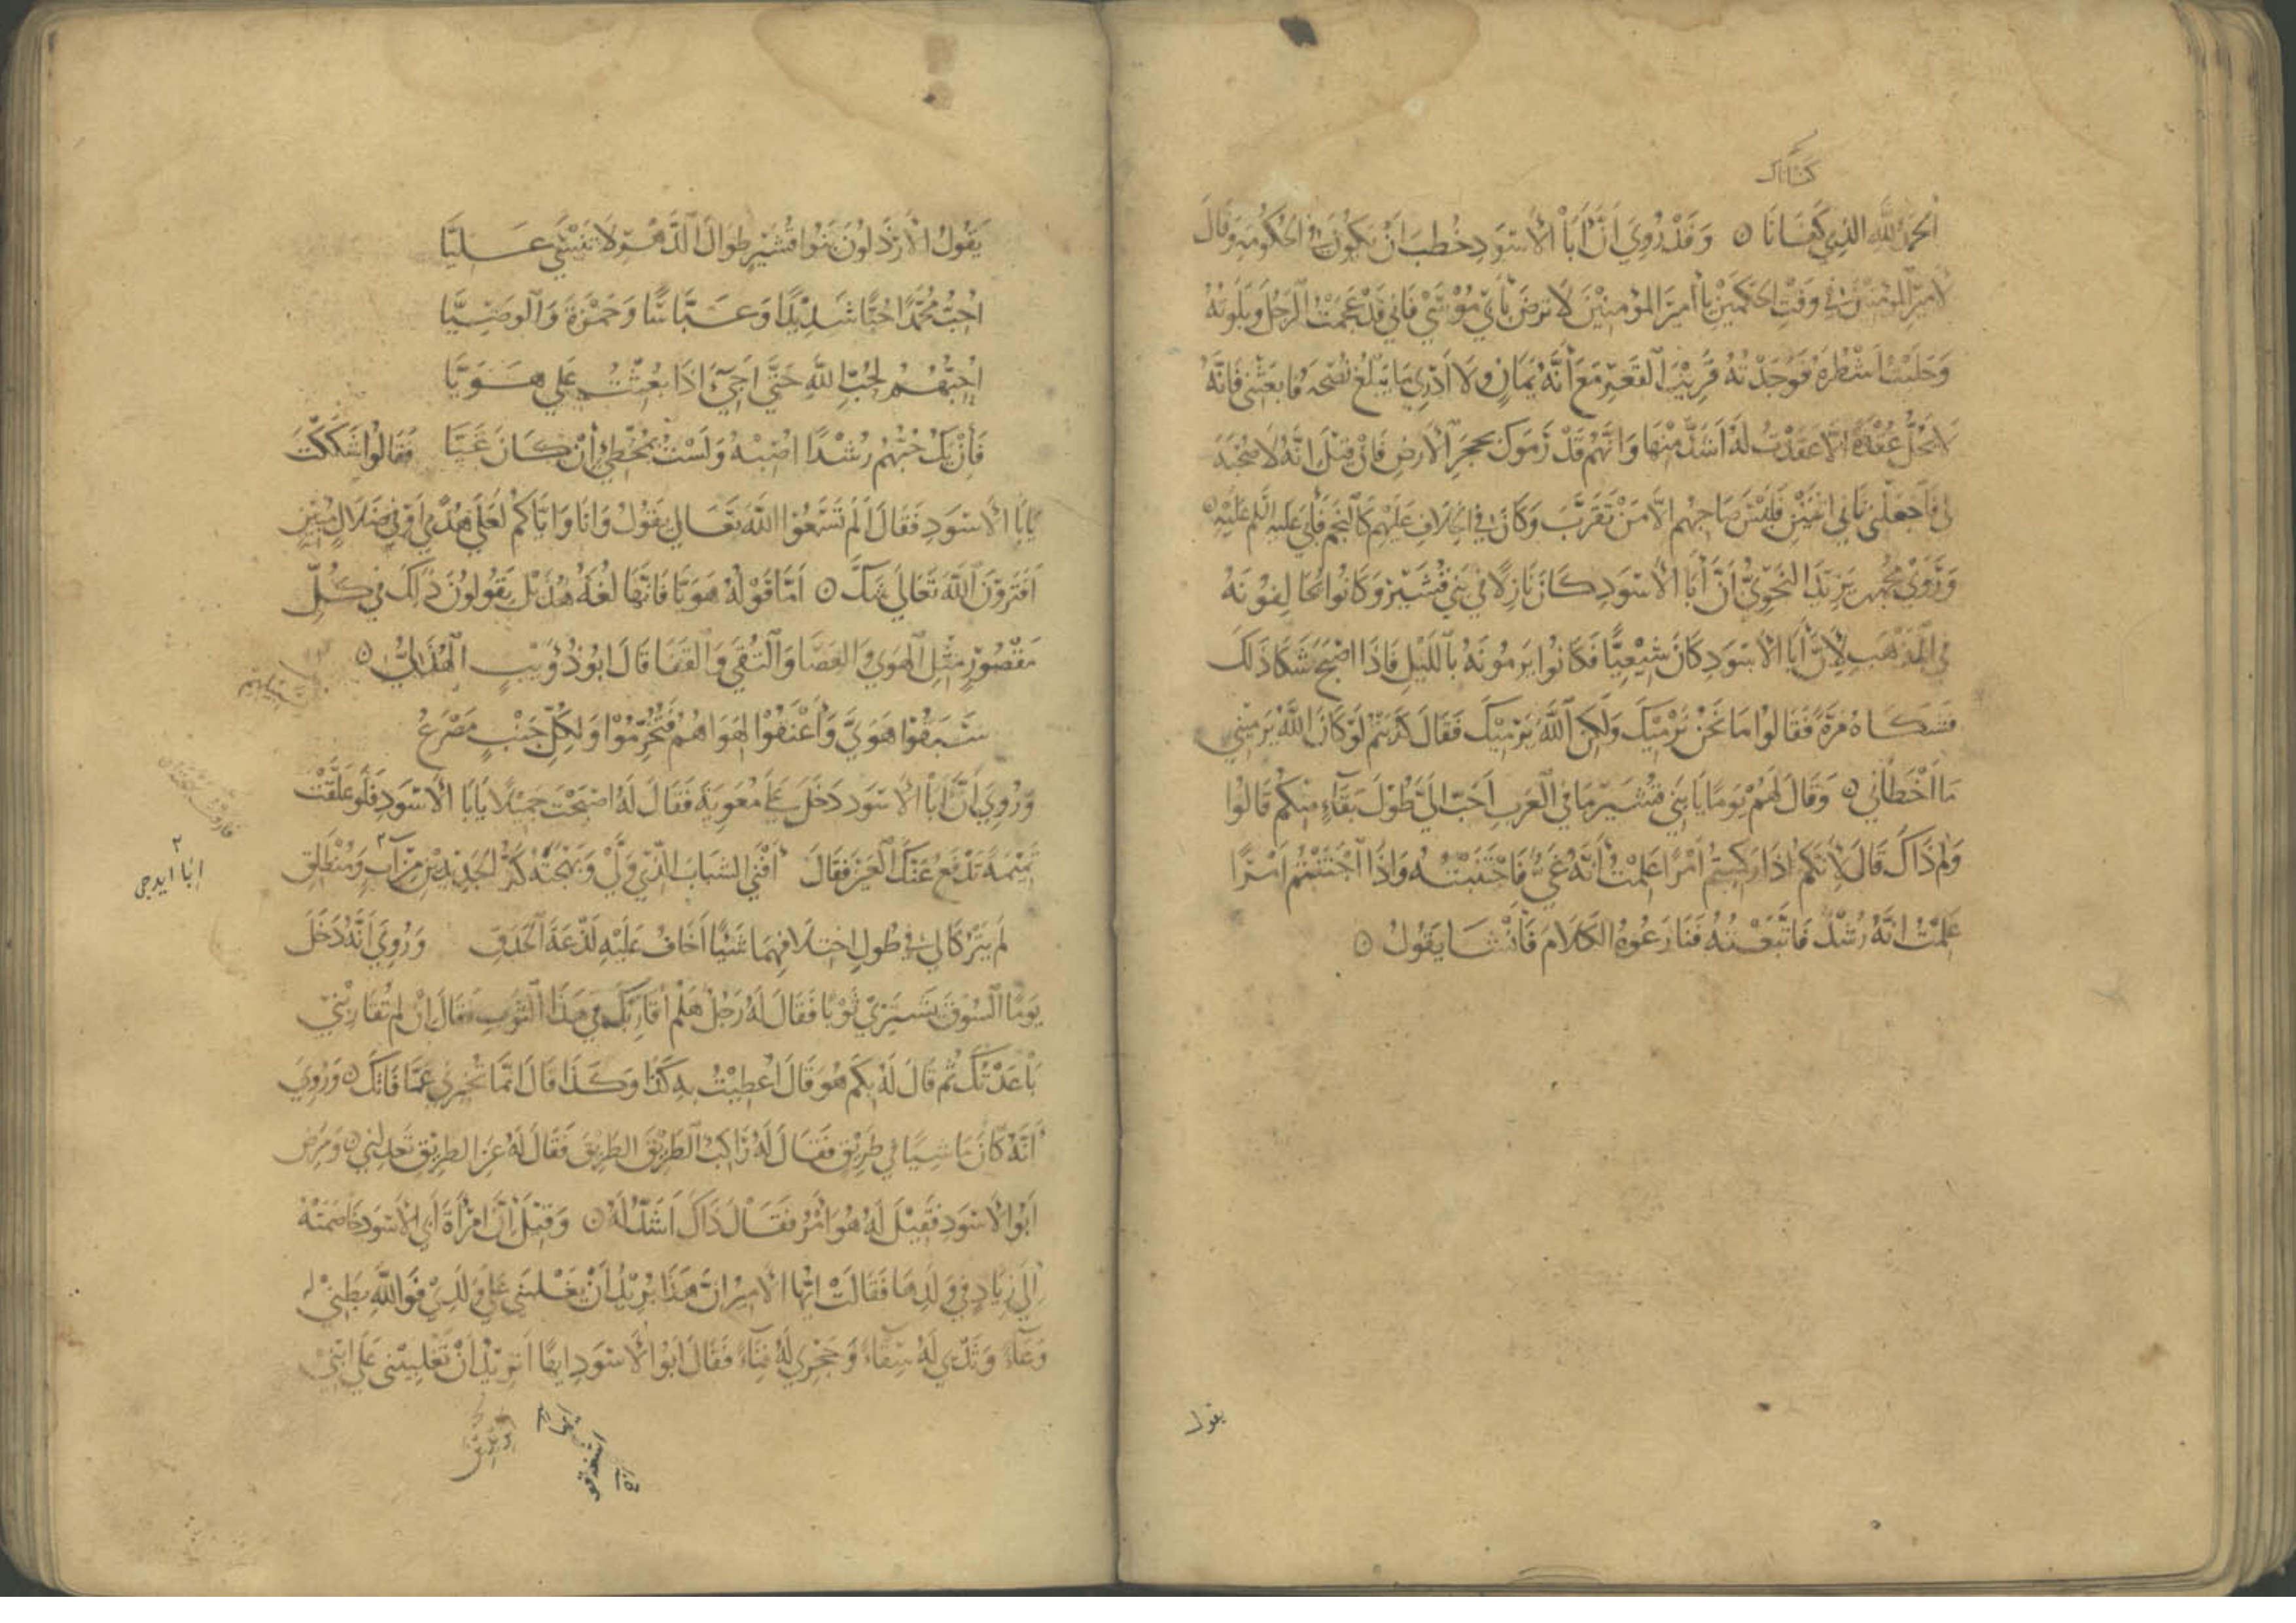 الحَمْدُ لِلَّهِ الذِي كَفَانَا ٥ وَقَدْ رُوِيَ أَنَّ أَبَا الأَسْوَدِ خُطِبَ أَنْ يَكُونَ فِي الحُكُومَةِ وَقَالَ
لأَمِيرِ المُؤْمِنِينَ فِي وَقْتِ الحَكَمَيْنِ يَا أَمِيرَ المُؤْمِنِينَ لاَ تَرْضَ بِأَبِي مُوسَى فَإِنِّي قَدْ عَجَمْتُ الرَجُلَ وَبَلَوْتُهُ
وَحَلَبْتُ أَشْطُرَهُ فَوَجَدْتُهُ قَرِيبَ القَعْرِ مَعَ أَنَّهُ يَمَانٍ وَلاَ أَدْرِي مَا يَبْلُغُ نُصْحَهُ فَابْعَثْنِي فَإِنَّهُ
لاَ يَحُلُّ عُقْدَةً إِلاَّ عَقَدْتُ لَهُ أَشَدَّ مِنْهَا وَإِنَّهُمْ قَدْ رَمَوْكَ بِحَجَرِ الأَرْضِ فَإِنْ قِيلَ إِنَّهُ لاَ صُحْبَةَ
لِي فَاجْعَلْنِي ثَانِيَ اثْنَيْنِ فَلَيْسَ صَاحِبُهُم إِلاَّ مَنْ تَقَرَّبَ وَكَانَ فِي الخِلاَفِ عَلَيْهِمْ كَالنَّجْمِ فَأَبَى عَلَيْهِ السَّلَم عَلَيْهِ ٥
وَرَوَى مُحَمَّدُ بنُ يَزِيدَ النَحْوِيُّ أَنَّ أَبَا الأَسْوَدِ كَانَ نَازِلاً فِي بَنِي قُشَيْرٍ وَكَانُوا يُخَالِفُونَهُ
فِي المَذْهَبِ لِأَنَّ أَبَا الأَسْوَدِ كَانَ شِيعِيًّا فَكَانُوا يَرْمُونَهُ بِاللَّيْلِ فَإِذَا أَصْبَحَ شَكَا ذَلِكَ
فَشَكَاهُ مَرَّةً فَقَالُوا مَا نَحْنُ نَرْمِيكَ وَلَكِنَّ اللَّهَ يَرْمِيكَ فَقَالَ كَذَبْتُمْ لَوْ كَانَ اللَّهُ يَرْمِينِي
مَا أَخْطَأَنِي ٥ وَقَالَ لَهُمْ يَوْمًا يَا بَنِي قُشَيْرٍ مَا فِي العَرَبِ أَحَبَّ إِلَيَّ طُولَ بَقَاءٍ مِنْكُمْ قَالُوا
وَلِمَ ذَاكَ قَالَ لأَنَّكُمْ إِذَا رَكِبْتُمْ أَمْرًا عَلِمْتُ أَنَّهُ غَيٌّ فَاجْتَنَبْتُهُ وَإِذَا اجْتَنَبْتُمْ أَمْرًا
عَلِمْتُ أَنَّهُ رُشْدٌ فَاتَّبَعْتُهُ فَنَازَعُوهُ الكَلاَمَ فَأَنْشَا يَقُولُ ٥
يقول
يَقُولُ الأَرْذَلُونَ بَنُوا قُشَيْرٍ طِوَالَ الدَّهْرِ لاَ تَنْسَى عَلِيًّا
أُحِبُّ مُحَمَّدًا حُبًّا شَدِيدًا وَعَبَّاسًا وَحَمْزَةَ وَالوَصِيَّا
أُحِبُّهُمُ لِحُبِّ اللَّهِ حَتَّى أَجِيءَ إِذَا بُعِثْتُ عَلَى هَوَيَّا
فَإِنْ يَكُ حُبُّهُمْ رُشْدًا أُصِبْهُ وَلَسْتُ بِمُخْطِئٍ إِنْ كَانَ غَيَّا فَقَالُوا شَكَكْتَ
يَابَا الأَسْوَدِ فَقَالَ أَلَمْ تَسْمَعُوا اللَّهَ تَعَالَى يَقُولُ وَإِنَّا وَإِيَّاكُمْ لَعَلَى هُدًى أَوْ فِي ضَلاَلٍ مُبِينٍ
أَفَتَرَوْنَ اللَّهَ تَعَالَى شَكَّ ٥ أَمَّا قَوْلُهُ هَوَيَّا فَإِنَّهَا لُغَةُ هُذَيْلٍ يَقُولُونَ ذَلِكَ فِي كُلِّ
مَقْصُورٍ مِثْلِ الهَوَى وَالعَصَا وَالتُّقَى وَالقَفَا قَالَ أَبُو ذُؤَيْبٍ الهُذَلِيُّ ٥
سَبَقُوا هَوَيَّ وَأَعْنَقُوا لِهَوَاهُمُ فَتُخُرِّمُوا وَلِكُلِّ جَنْبٍ مَصْرَعُ
وَرُوِيَ أَنَّ أَبَا الأَسْوَدِ دَخَلَ عَلَى مُعَوِيَةَ فَقَالَ لَهُ أَصْبَحْتَ جَمِيلاً يَابَا الأَسْوَدِ فَلَوْ عَلَّقْتَ
تَمِيمَةً تَدْفَعُ عَنْكَ العَيْنَ فَقَالَ أَفْنَى الشَبَابَ الذِي وَلَّى وَبَهْجَتَهُ كَرُّ الجَدِيدَيْنِ مِنْ آتٍ وَمُنْطَلِقِ
لَمْ يَتْرُكَا لِي فِي طُولِ اخْتِلاَفِهِمَا شَيْئًا أَخَافُ عَلَيْهِ لَذْعَةَ الحَدَقِ وَرُوِيَ أَنَّهُ دَخَلَ
يَوْمًا السُوقَ يَشْتَرِي ثَوْبًا فَقَالَ لَهُ رَجُلٌ هَلُمَّ أُقَارِبْكَ فِي هَذَا الثَوْبِ فَقَالَ إِنْ لَمْ تُقَارِبْنِي
بَاعَدْتُكَ ثُمَّ قَالَ لَهُ بِكَمْ هُوَ قَالَ أُعْطِيتُ بِهِ كَذَا وَكَذَا قَالَ إِنَّمَا تُخْبِرُنِي عَمَّا فَاتَكَ ٥ وَرُوِيَ
أَنَّهُ كَانَ مَاشِيًا فِي طَرِيقٍ فَقَالَ لَهُ رَاكِبٌ الطَرِيقَ الطَرِيقَ فَقَالَ لَهُ عَنِ الطَرِيقِ تَعْدِلُنِي ٥ وَمَرِضَ
أَبُو الأَسْوَدِ فَقِيلَ لَهُ هُوَ أَمْرٌ فَقَالَ ذَاكَ أَشَدُّ لَهُ ٥ وَقِيلَ إِنَّ امْرَأَةَ أَبِي الأَسْوَدِ خَاصَمَتْهُ
إِلَى زِيَادٍ فِي وَلَدِهَا فَقَالَتْ أَيُّهَا الأَمِيرُ إِنَّ هَذَا يُرِيدُ أَنْ يَغْلِبَنِي عَلَى وَلَدِي فَوَاللَّهِ بَطْنِي لَهُ
وِعَاءٌ وَثَدْيِي لَهُ سِقَاءٌ وَحَجْرِي لَهُ فِنَاءٌ فَقَالَ أَبُو الأَسْوَدِ إِيهًا أَتُرِيدِينَ أَنْ تَغْلِبِينِي عَلَى ابْنِي